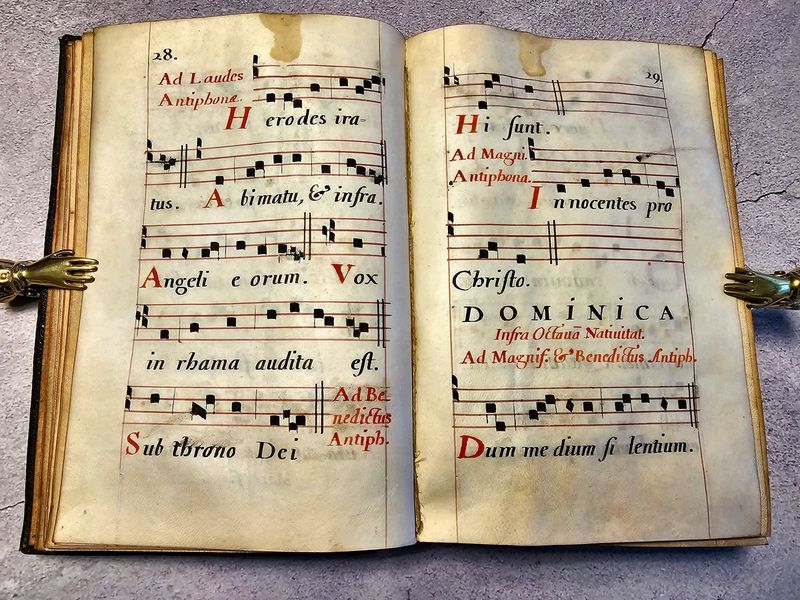 28.
Ad Laudes
Antiphonæ.
Herodes ira-
tus. A bimatu, & infra.
Angeli eorum. Vox
in rhama audita eſt.
Sub throno Dei
Ad Be-
nedictus
Antiph.
29.
Hi ſunt.
Ad Magni.
Antiphona.
Innocentes pro
Chriſto.
DOMINICA
Infra Octauā Natiuitat.
Ad Magnif. & Benedictus Antiph.
Dum medium ſilentium.